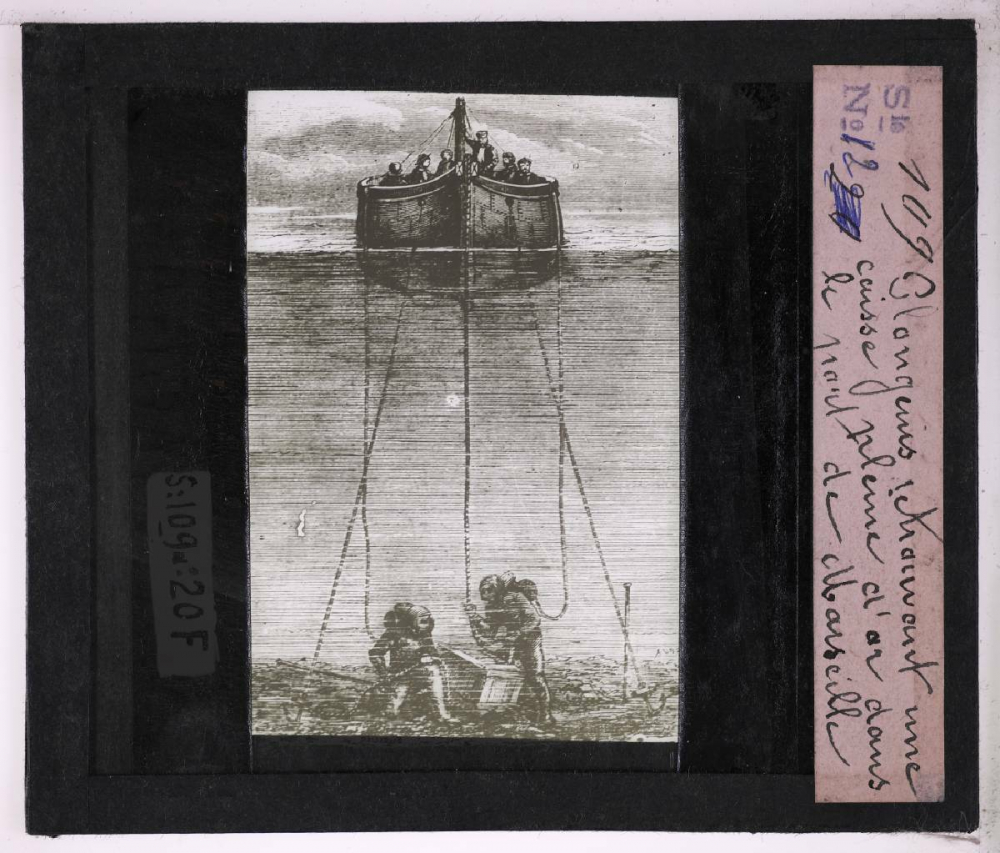 Sie 109 Plongeurs retrouvant une
No 12 caisse pleine d'or dans
le port de Marseille
S:109n::20F